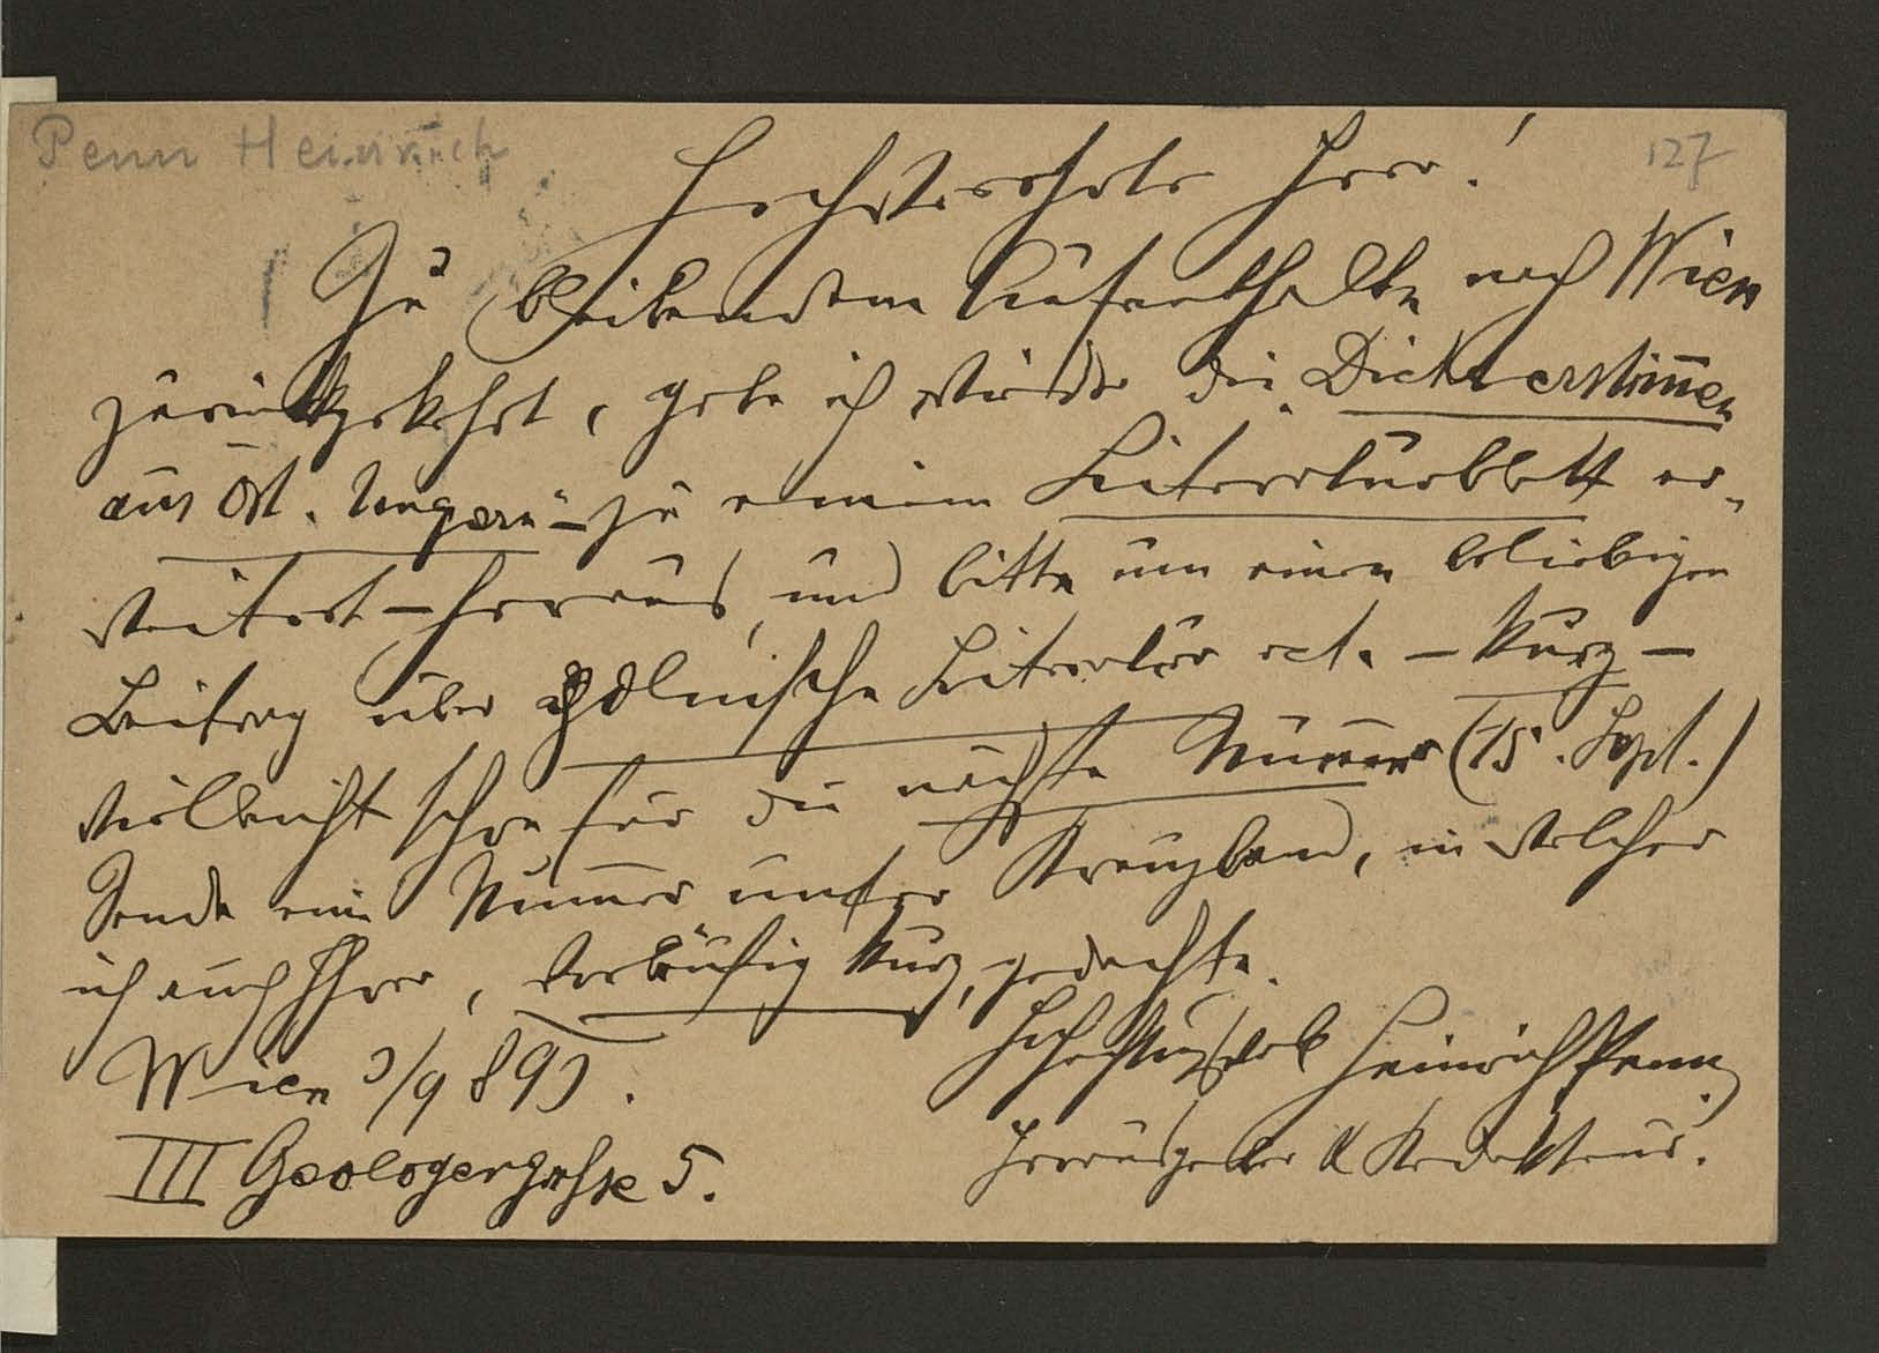 Penn Heinrich
127
Hochverehrter Herr!
Zu bleibendem Aufenthalte nach Wien
zurückgekehrt, gebe ich wieder die Dichterstim̄en
aus Öst. Ungarn" – zu einem Literaturblatt er-
weitert – heraus, und bitte um einen beliebigen
Beitrag über polnische Literatur ect. – kurz –
vielleicht schon für die nächste Num̄er (15. Sept.)
Sende eine Num̄er unter Kreuzband, in welcher
ich auch Ihrer, vorläufig kurz, gedachte.
Hochachtungsvoll Heinrich Penn
Wien 3/9 893.
Herausgeber & Redakteur.
III Geologengasse 5.